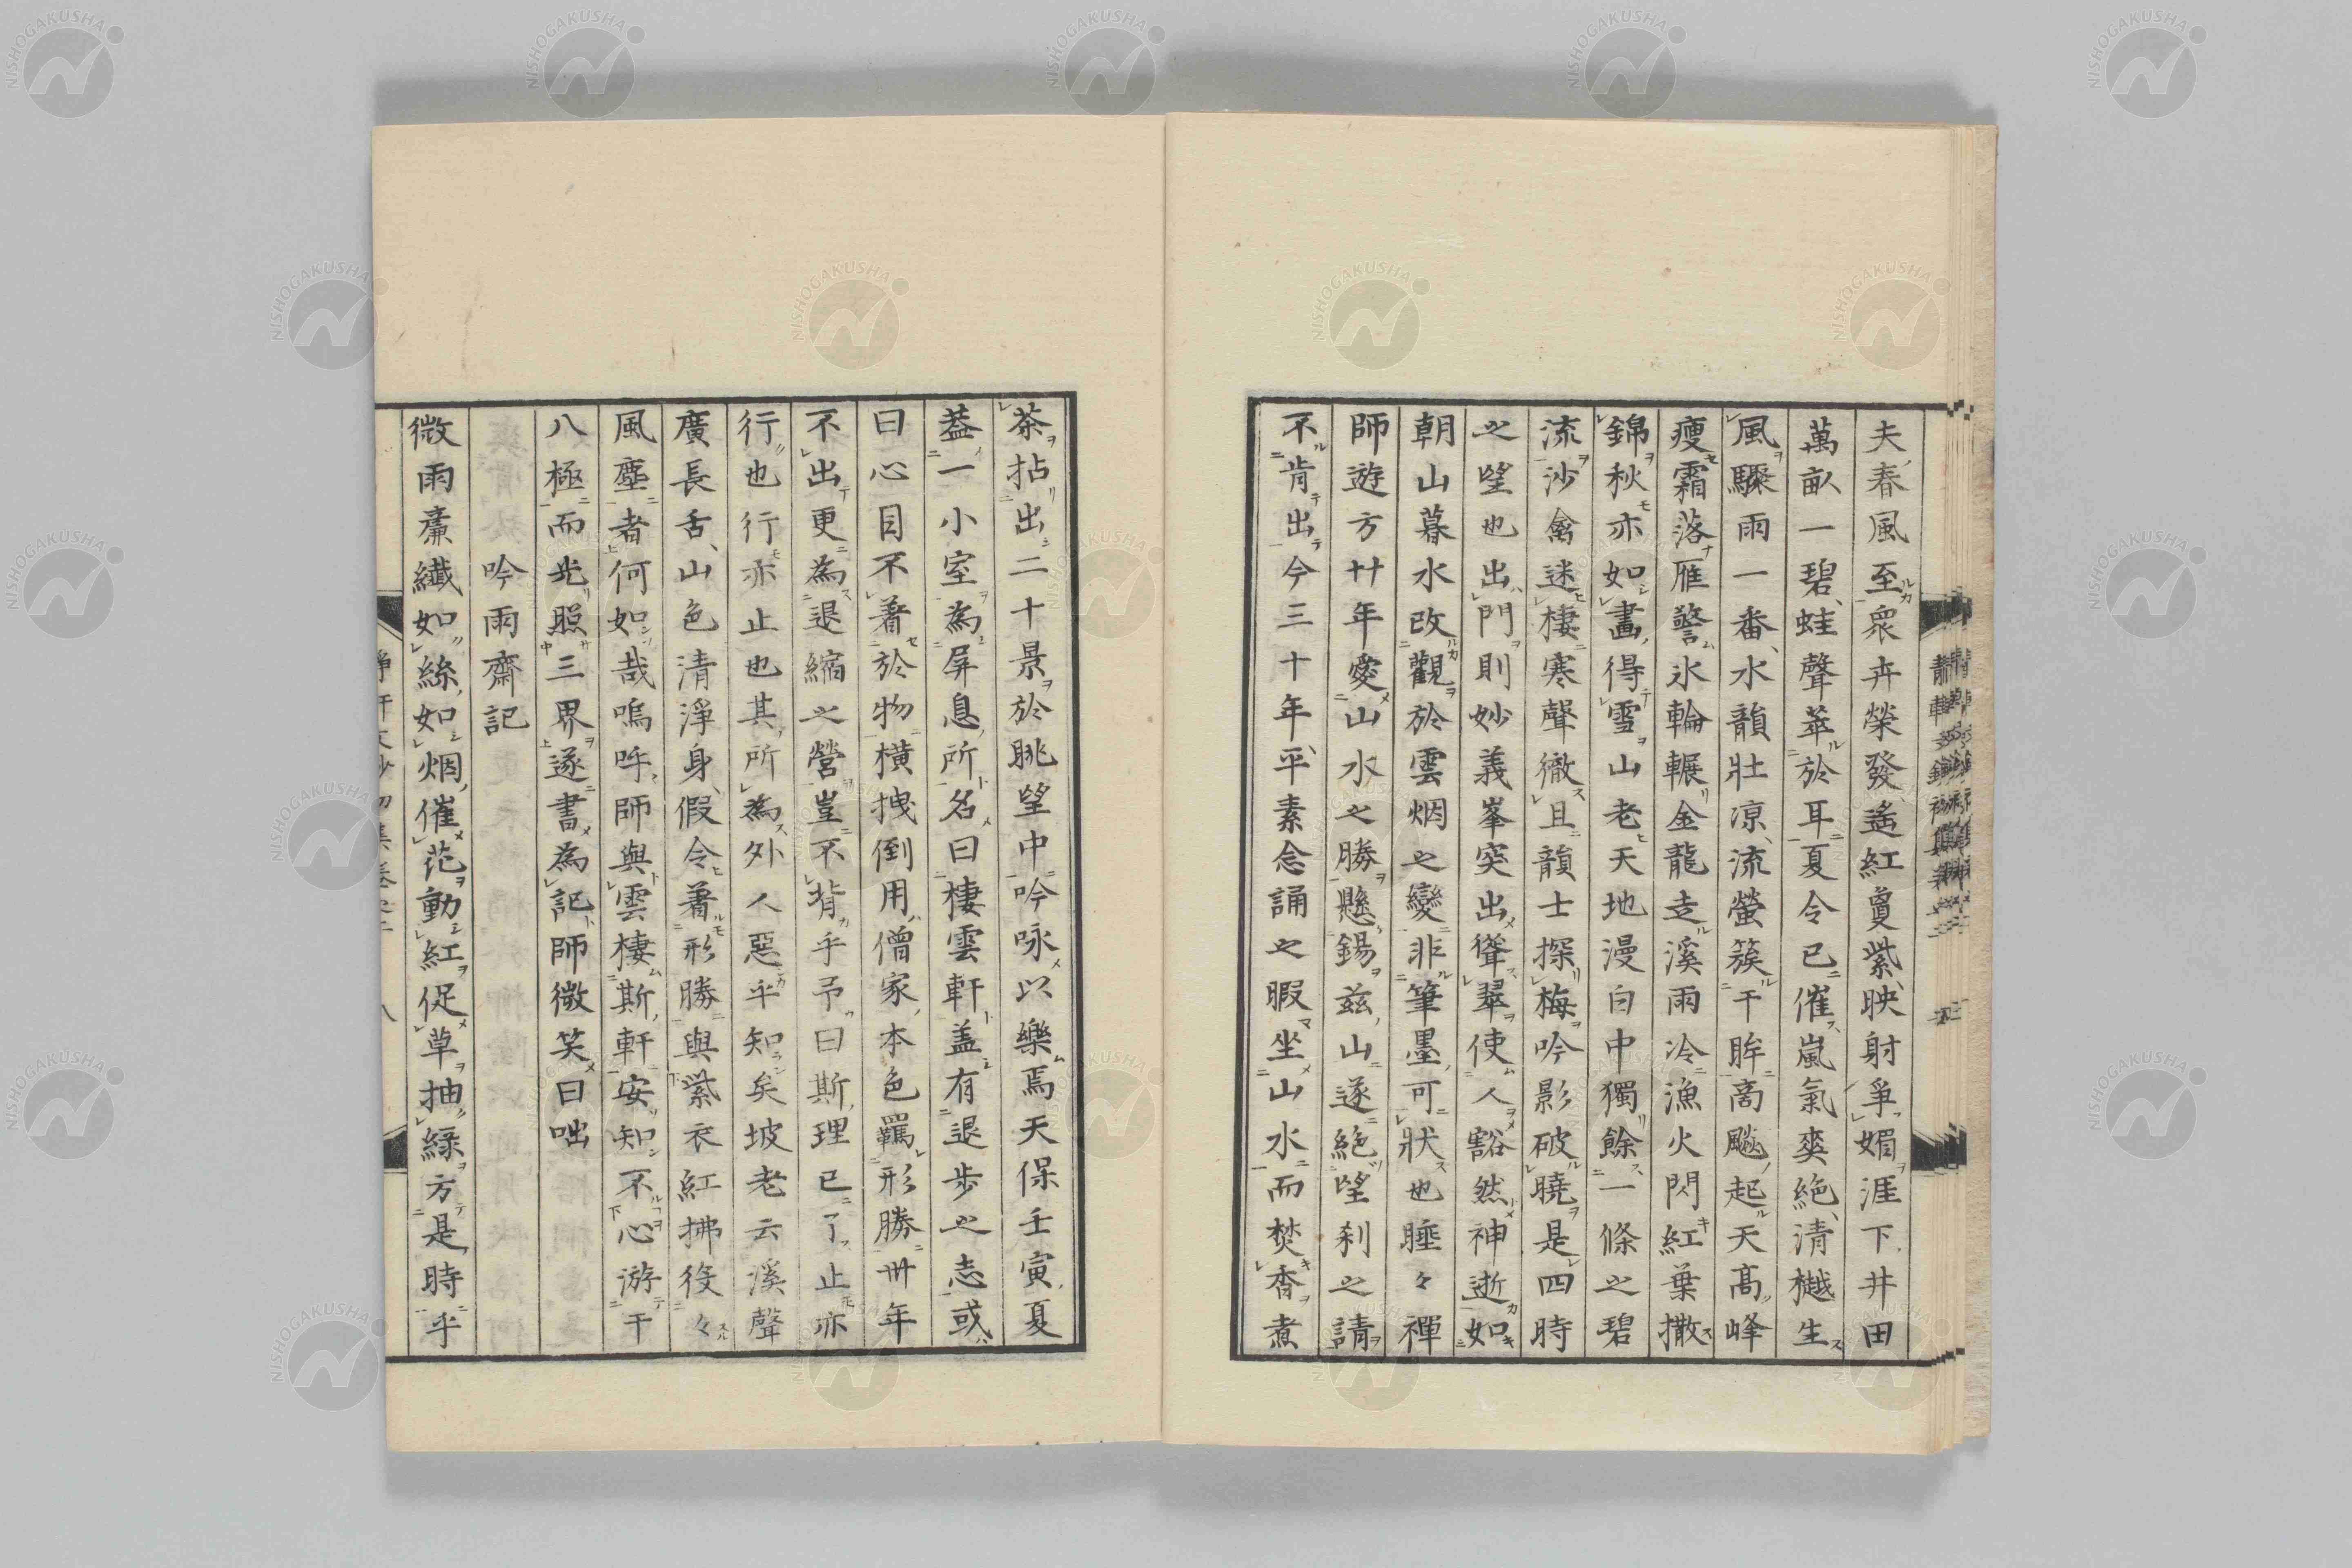 夫春風至衆卉榮發遙紅敻紫映射爭媚涯下井田
萬畝一碧蛙聲萃於耳夏令已催嵐氣爽絶清樾生
風驟雨一番水韻壯凉流螢簇于眸高飈起天高峰
瘦霜落雁警氷輪輾金龍走溪雨冷漁火閃紅葉撒
錦秋亦如畫得雪山老天地漫白中獨餘一條之碧
流沙禽迷棲寒聲徹且韻士探梅吟影破曉是四時
之望也出門則妙義峯突出聳翠使人豁然神逝如
朝山暮水改觀於雲烟之變非筆墨可狀也睡々禪
師遊方廿年愛山水之勝懸錫茲山遂絶望刹之請
不肯出今三十年平素念誦之暇坐山水而焚香煮
茶拈出二十景於眺望中吟咏以樂焉天保壬寅夏
葢一小室為屏息所名曰棲雲軒盖有退步之志或
曰心目不著於物橫拽倒用僧家本色羈形勝卅年
不出更為退縮之營豈不背乎予曰斯理已了止亦
行也行亦止也其所為外人惡乎知矣坡老云溪聲
廣長舌山色清淨身假令著形勝與紫衣紅拂役々
風塵者何如哉嗚呼師與雲棲斯軒安知不心游于
八極而光照三界遂書為記師微笑曰咄
吟雨齋記
微雨廉纖如絲如烟催花動紅促草抽綠方是時乎
NISHOGAKUSHA